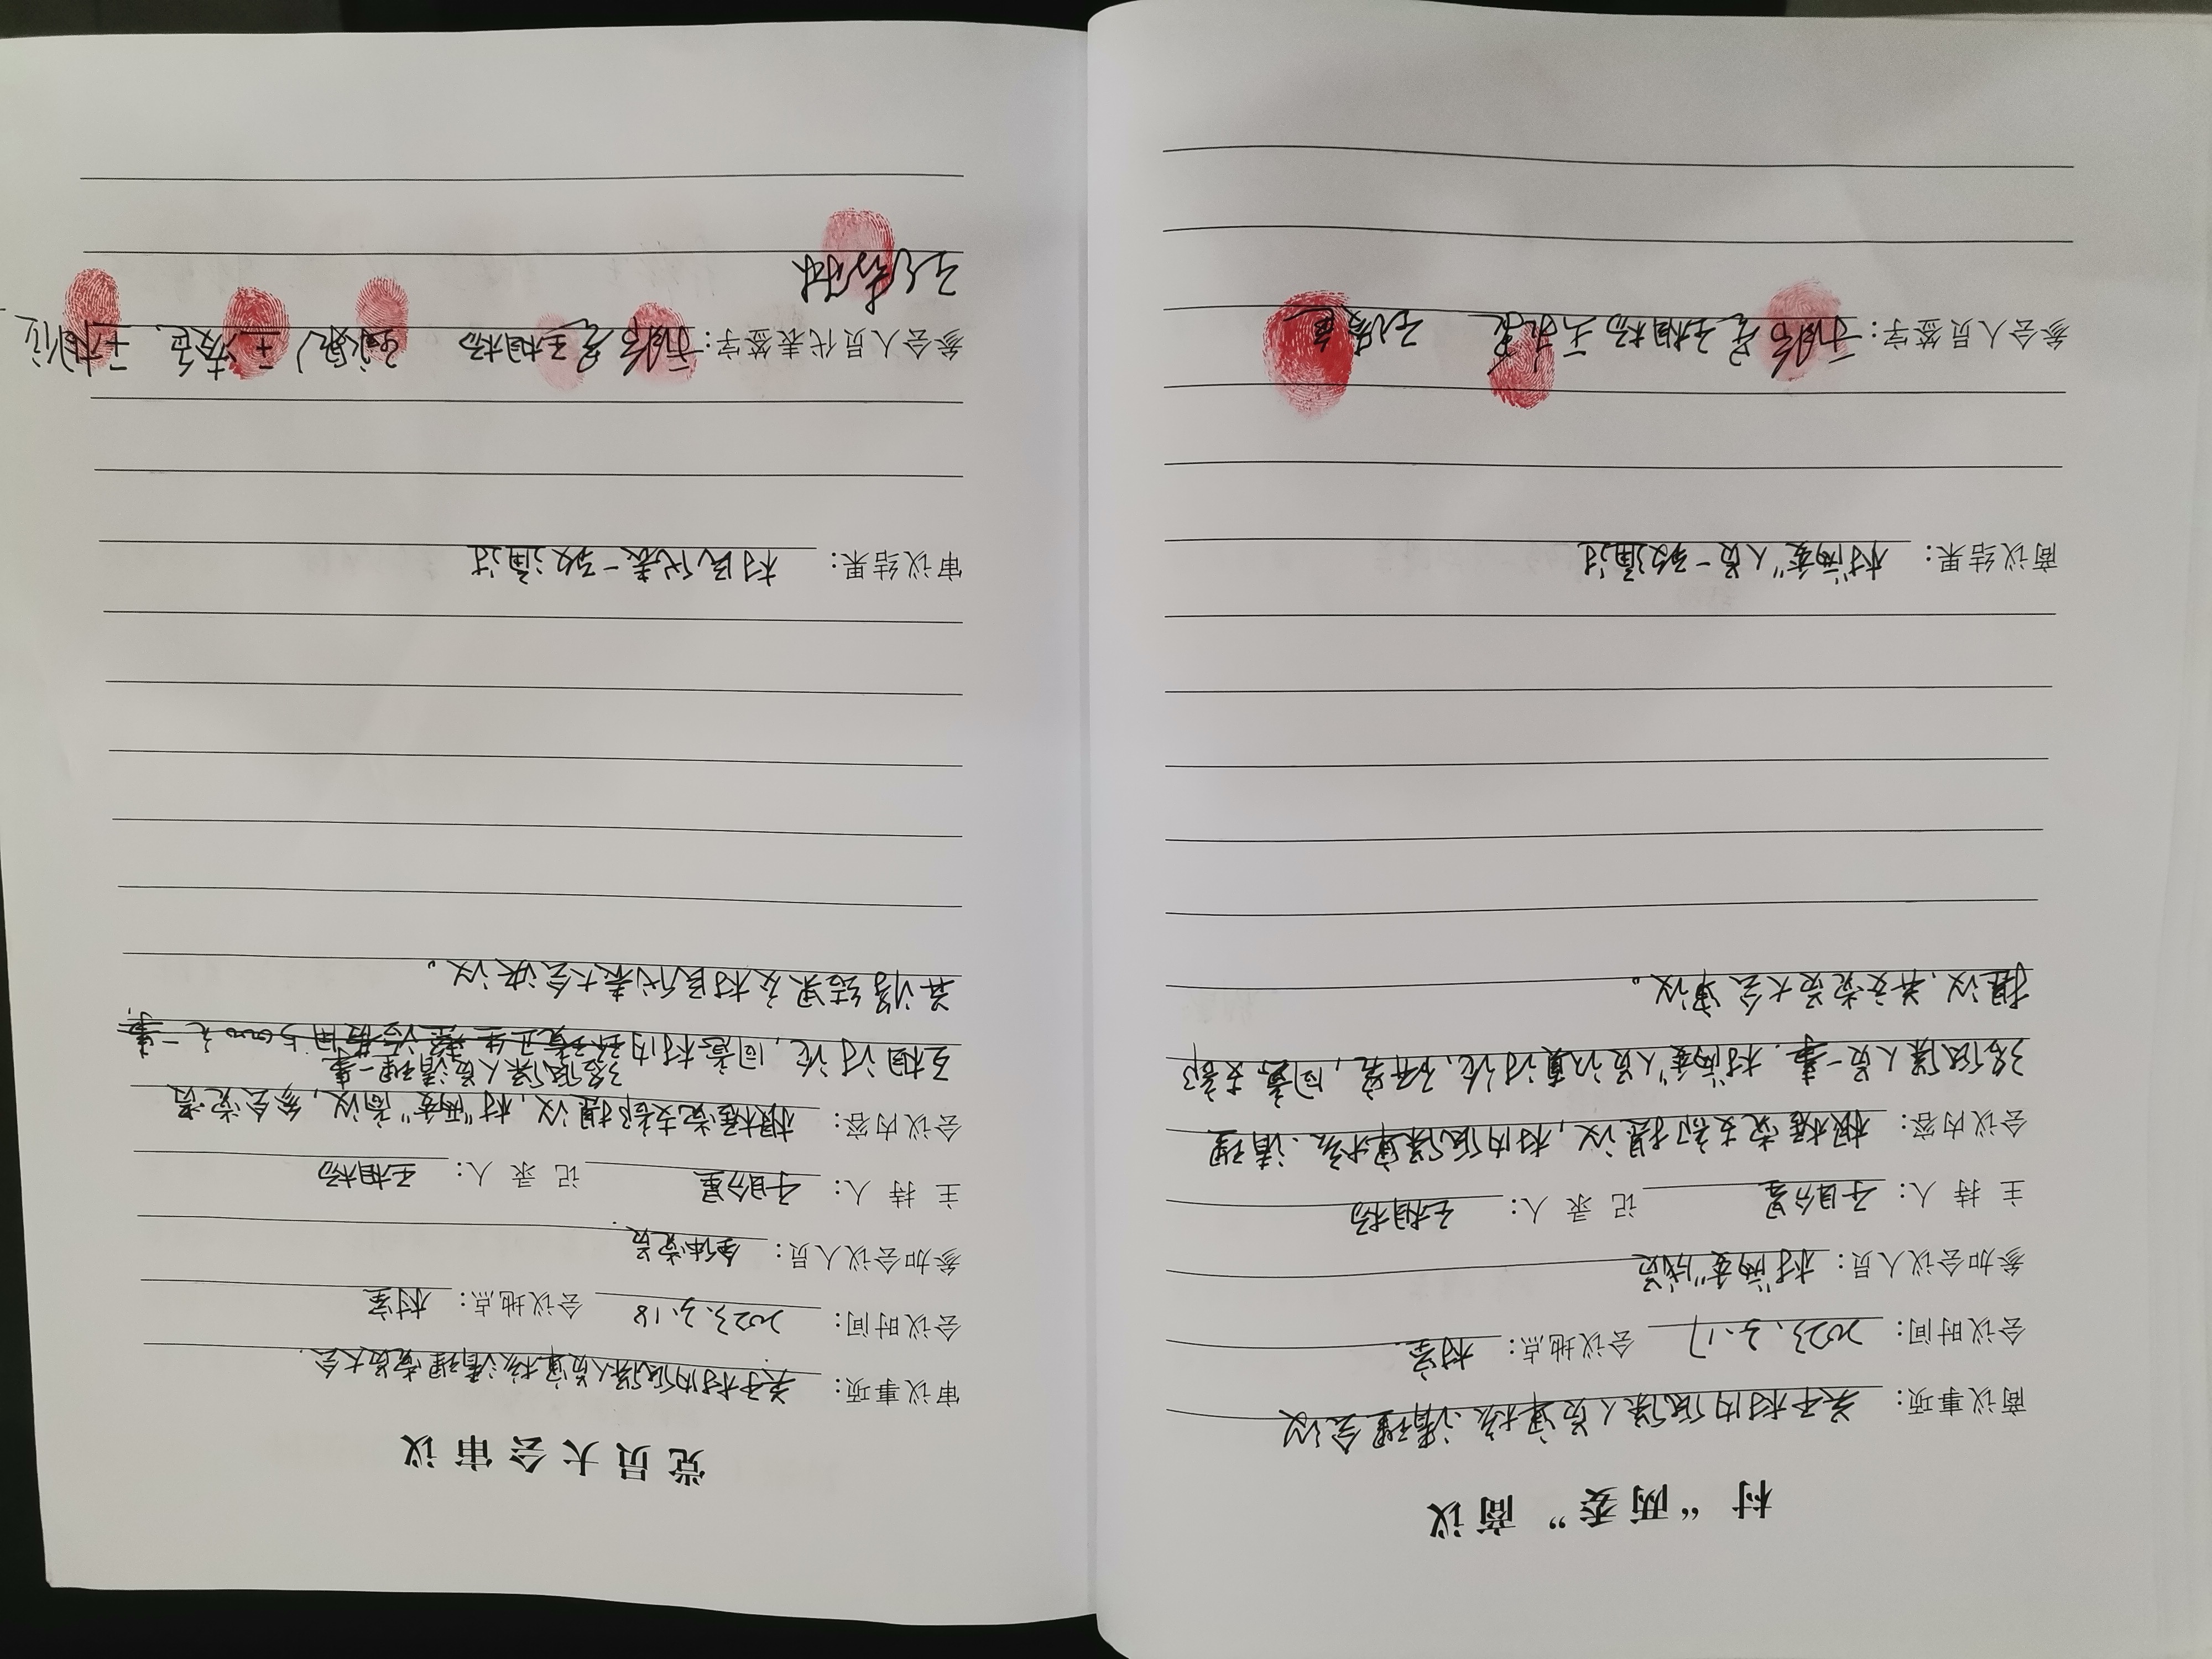 村“两委”商议
商议事项：关于村内低保人员审核、清理会议
会议时间：2023.3.17 会议地点：村室.
参加会议人员：村“两委”成员
主持人：于盼星 记录人：王相杨
会议内容：根据党支部提议，村内低保审核、清理
3名低保人员一事，村“两委”人员认真讨论、研究，同意支部
提议、并交党员大会审议。
商议结果：村“两委”人员一致通过
参会人员签字：于盼星 王相杨 王凌色
党员大会审议
审议事项：关于村内低保人员审核清理党员大会.
会议时间：2023.3.18 会议地点：村室
参加会议人员：全体党员.
主持人：于盼星 记录人：王相杨
会议内容：根据党支部提议，村“两委”商议，参会党员
3名低保人员清理一事
互相讨论，同意村内环境卫生整治费用5000元一事，
并将结果交村民代表大会决议。
审议结果：村民代表一致通过
参会人员代表签字：于盼星 王相杨 王凌色、王相位